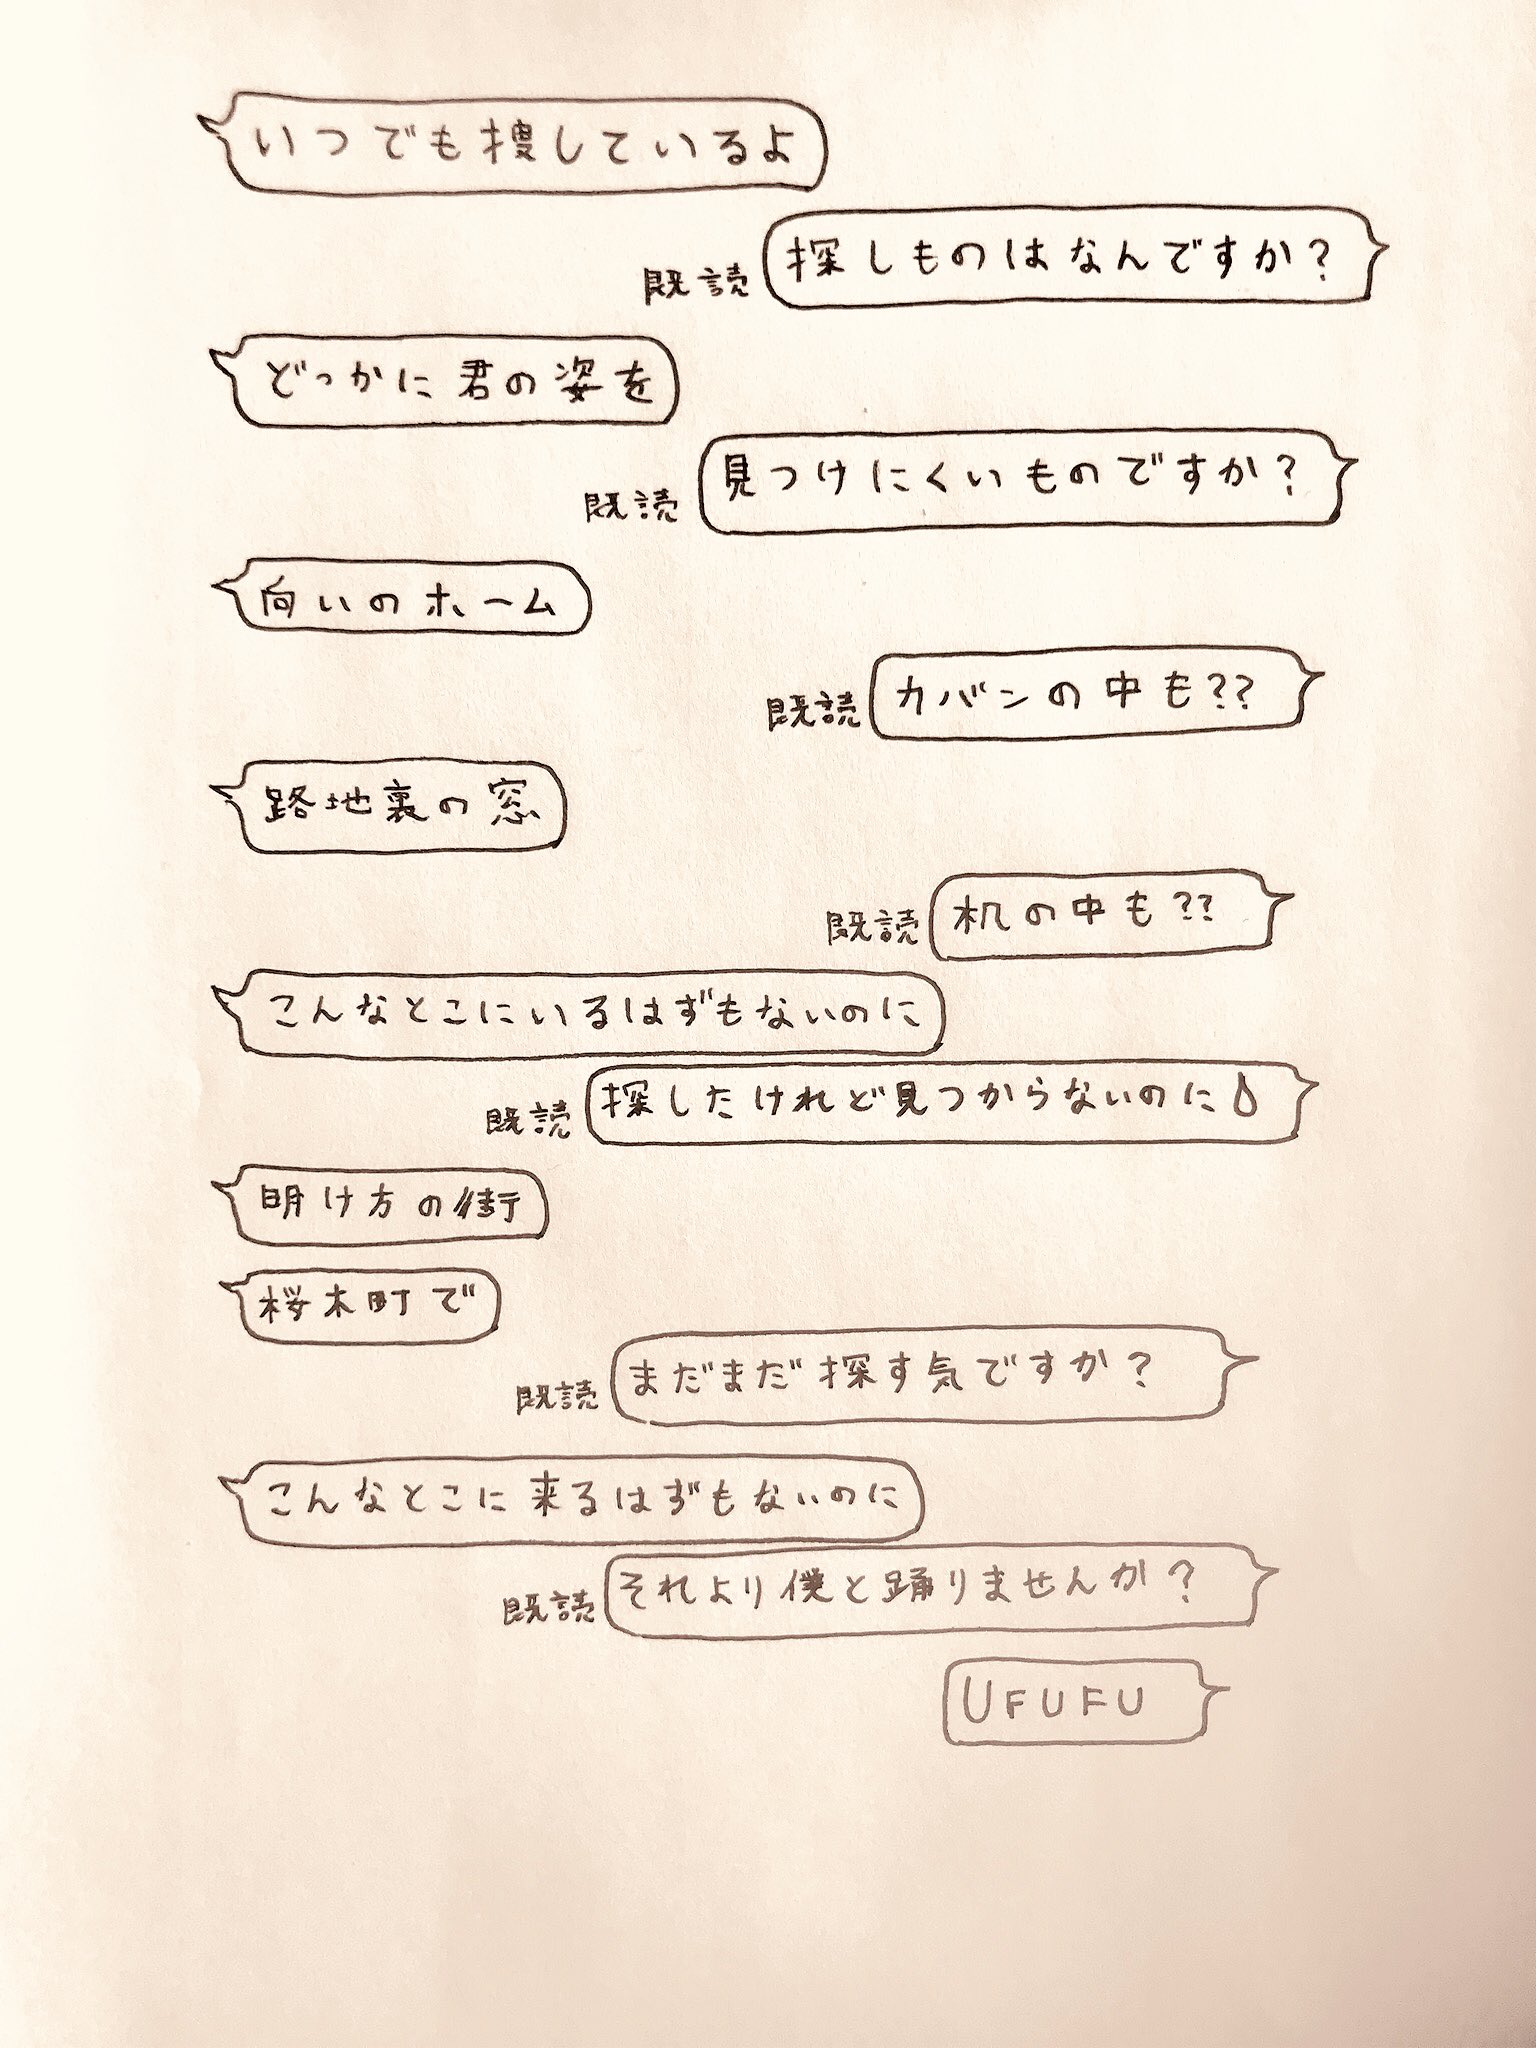 いつでも捜しているよ
探しものはなんですか?
既読
どっかに君の姿を
見つけにくいものですか?
既読
向いのホーム
カバンの中も??
既読
路地裏の窓
机の中も??
既読
こんなとこにいるはずもないのに
探したけれど見つからないのに
既読
明け方の街
桜木町で
まだまだ探す気ですか?
既読
こんなとこに来るはずもないのに
それより僕と踊りませんか?
既読
UFUFU